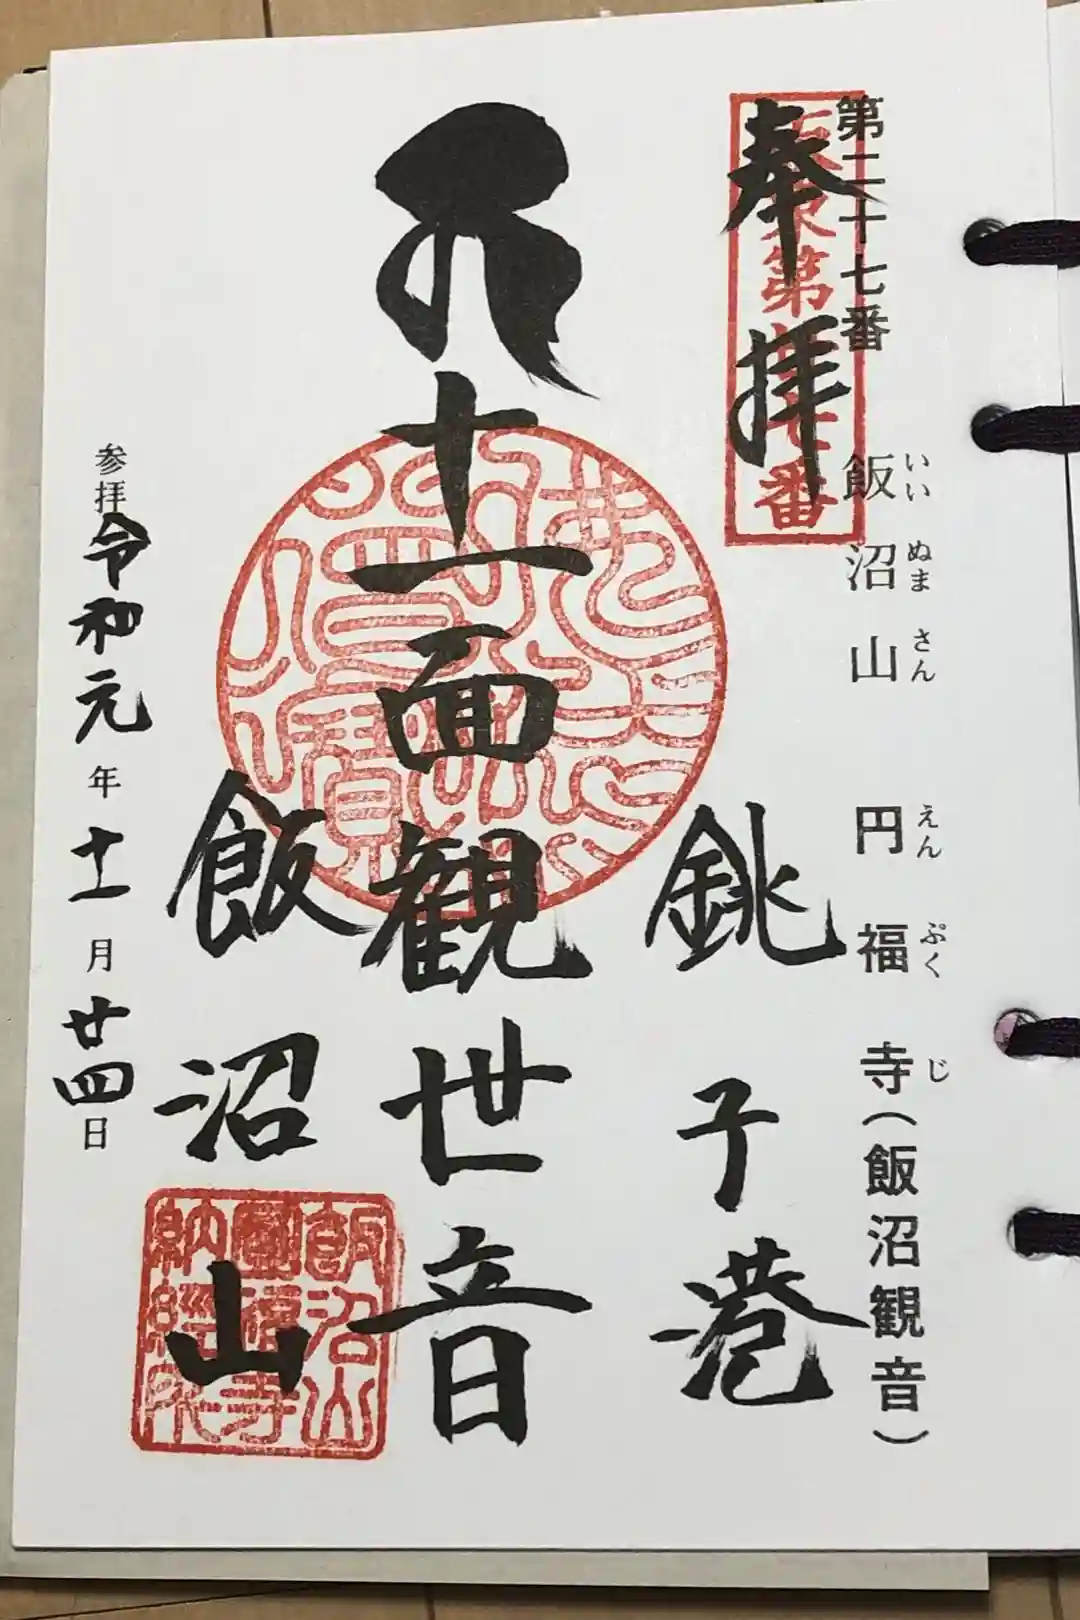 第二十七番
飯沼山 円福寺(飯沼観音)
いいぬまさん えんぷくじ
奉拝
銚子港
十一面観世音
飯沼山
参拝令和元年十一月廿四日
飯沼山
圓福寺
納經所